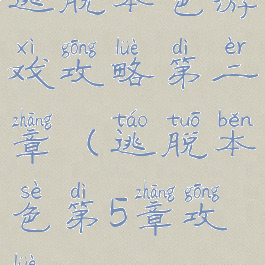 逃脱本色游
xì gōng lüè dì èr
戏攻略第二
zhāng táo tuō běn
章（逃脱本
sè dì zhāng gōng
色第5章攻
lüè